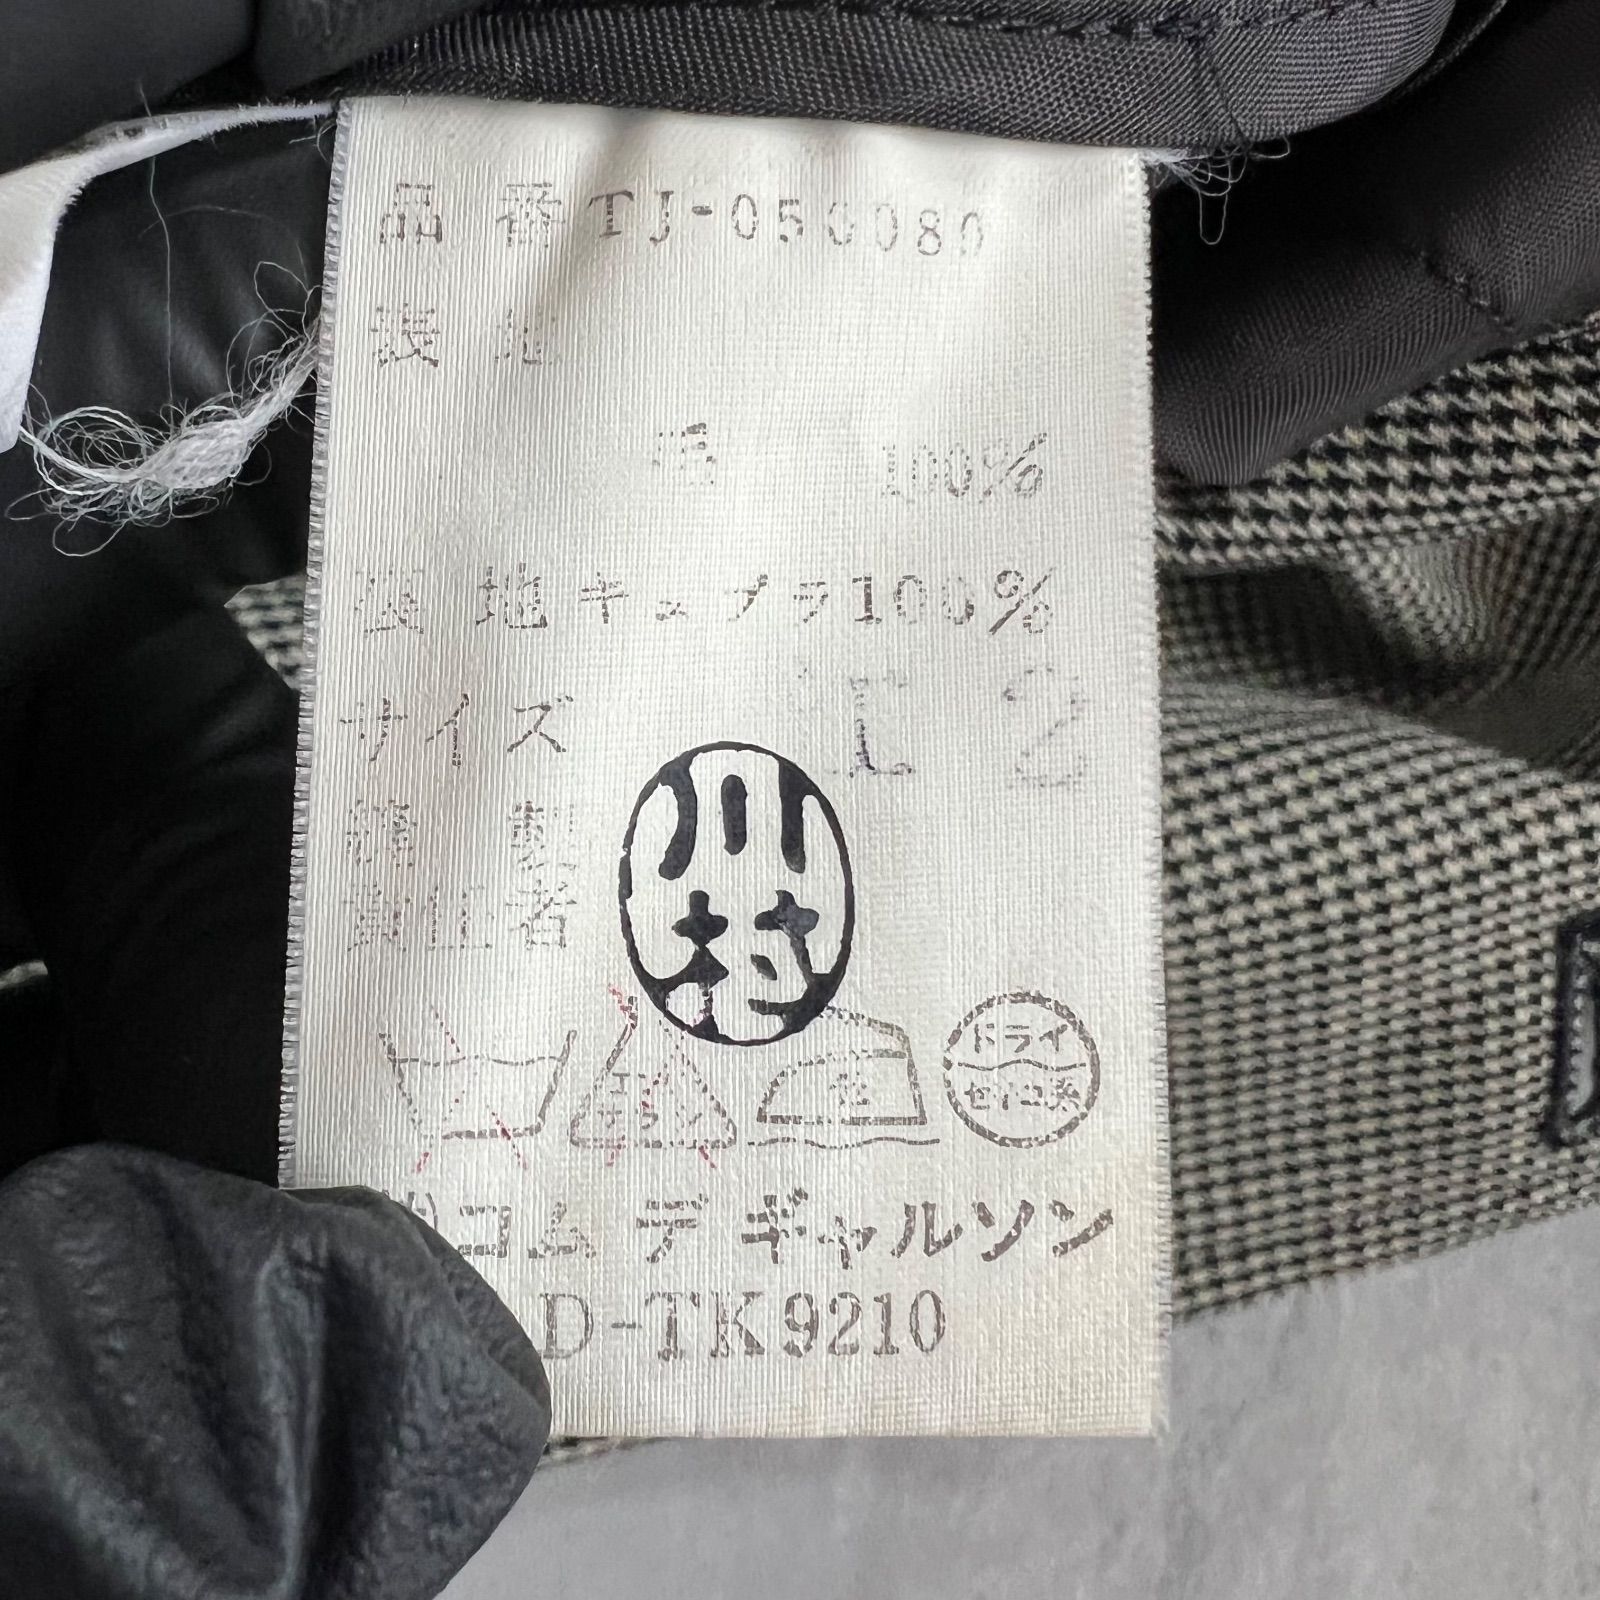 品 番 TJ-050080
表 地
毛 100%
裏 地 キュプラ100%
サイズ
縫 製
責任者
川村
ドライ
セキユ系
㈱コム デ ギャルソン
D-TK9210